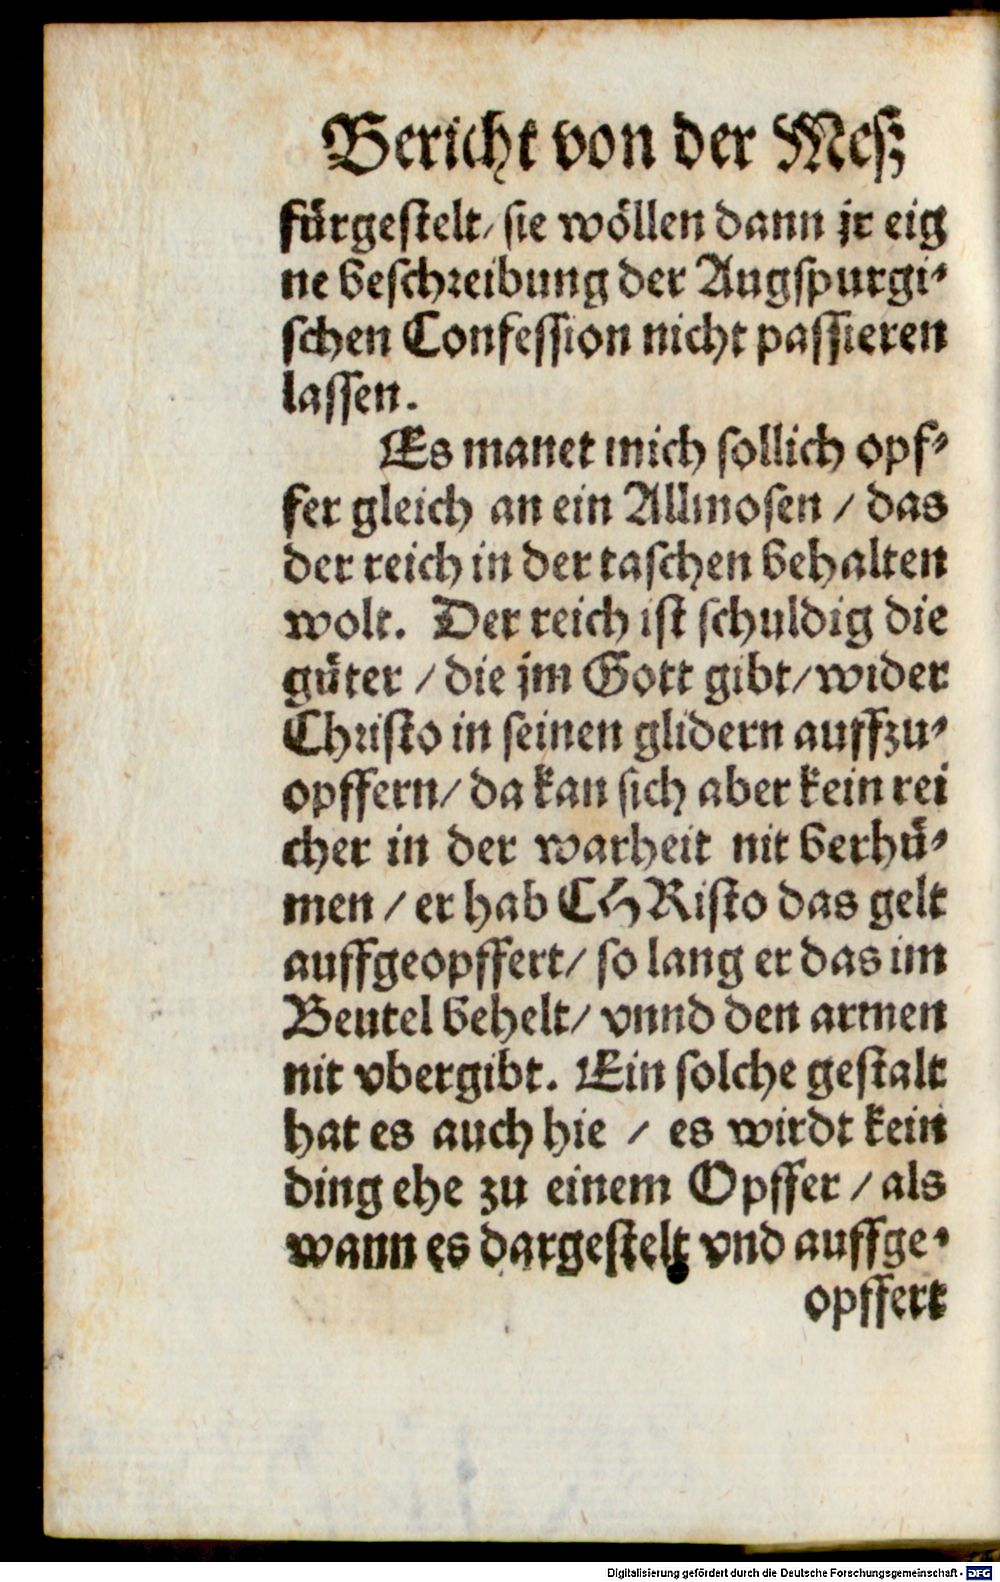 Bericht von der Meß
fürgestelt/ sie wöllen dann jr eig
ne beschreibung der Augspurgi-
schen Confession nicht passieren
lassen.
Es manet mich sollich opf-
fer gleich an ein Allmosen / das
der reich in der taschen behalten
wolt. Der reich ist schuldig die
güter / die jm Gott gibt/ wider
Christo in seinen glidern auffzu-
opffern/ da kan sich aber kein rei
cher in der warheit nit berhü-
men / er hab CHRisto das gelt
auffgeopffert/ so lang er das im
Beutel behelt/ vnnd den armen
nit vbergibt. Ein solche gestalt
hat es auch hie / es wirdt kein
ding ehe zu einem Opffer / als
wann es dargestelt vnd auffge-
opffert
Digitalisierung gefördert durch die Deutsche Forschungsgemeinschaft - DFG